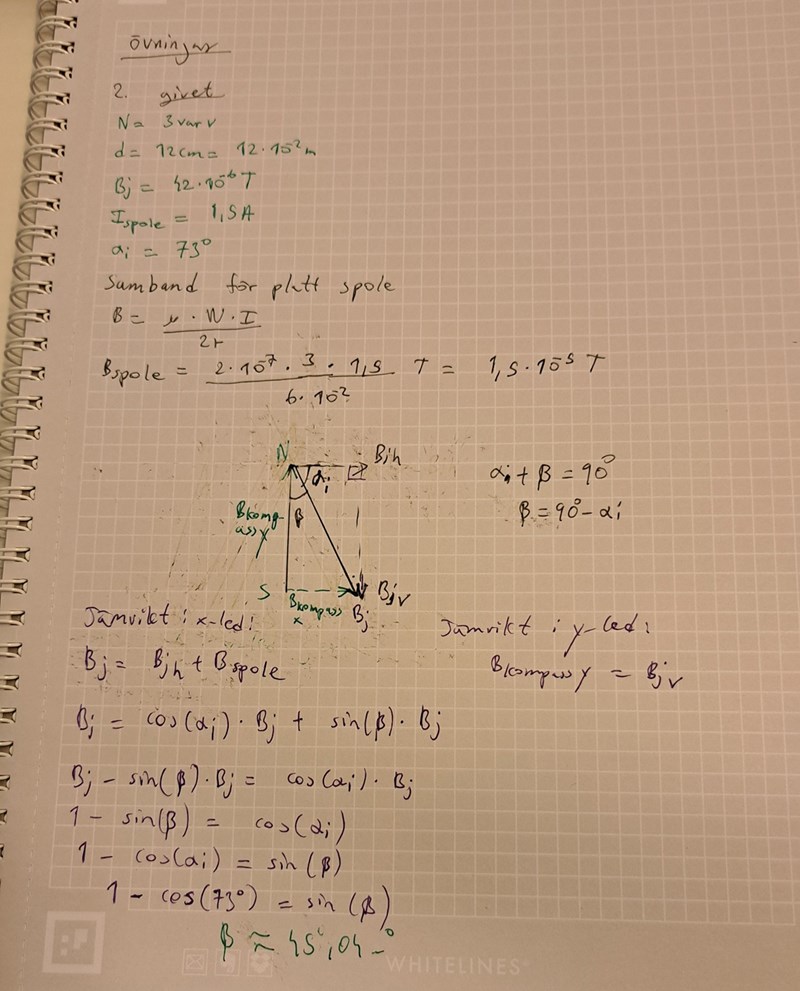 övningar
2. givet
N = 3 varv
d = 12cm = 12·10⁻²m
Bj = 42·10⁻⁶T
Ispole = 1,5A
αi = 73°
Samband för platt spole
B = μ·N·I / 2r
Bspole = 2·10⁻⁷·3·1,5 / 6·10⁻² T = 1,5·10⁻⁵ T
N Bjh
αi
αi + β = 90°
Bkompassy β
β = 90° - αi
S Bkompass x Bj Bjv
Jämvikt i x-led:
Jämvikt i y-led:
Bj = Bjh + Bspole
Bkompassy = Bjv
Bj = cos(αi)·Bj + sin(β)·Bj
Bj - sin(β)·Bj = cos(αi)·Bj
1 - sin(β) = cos(αi)
1 - cos(αi) = sin(β)
1 - cos(73°) = sin(β)
β ≈ 45,04°
WHITELINES®